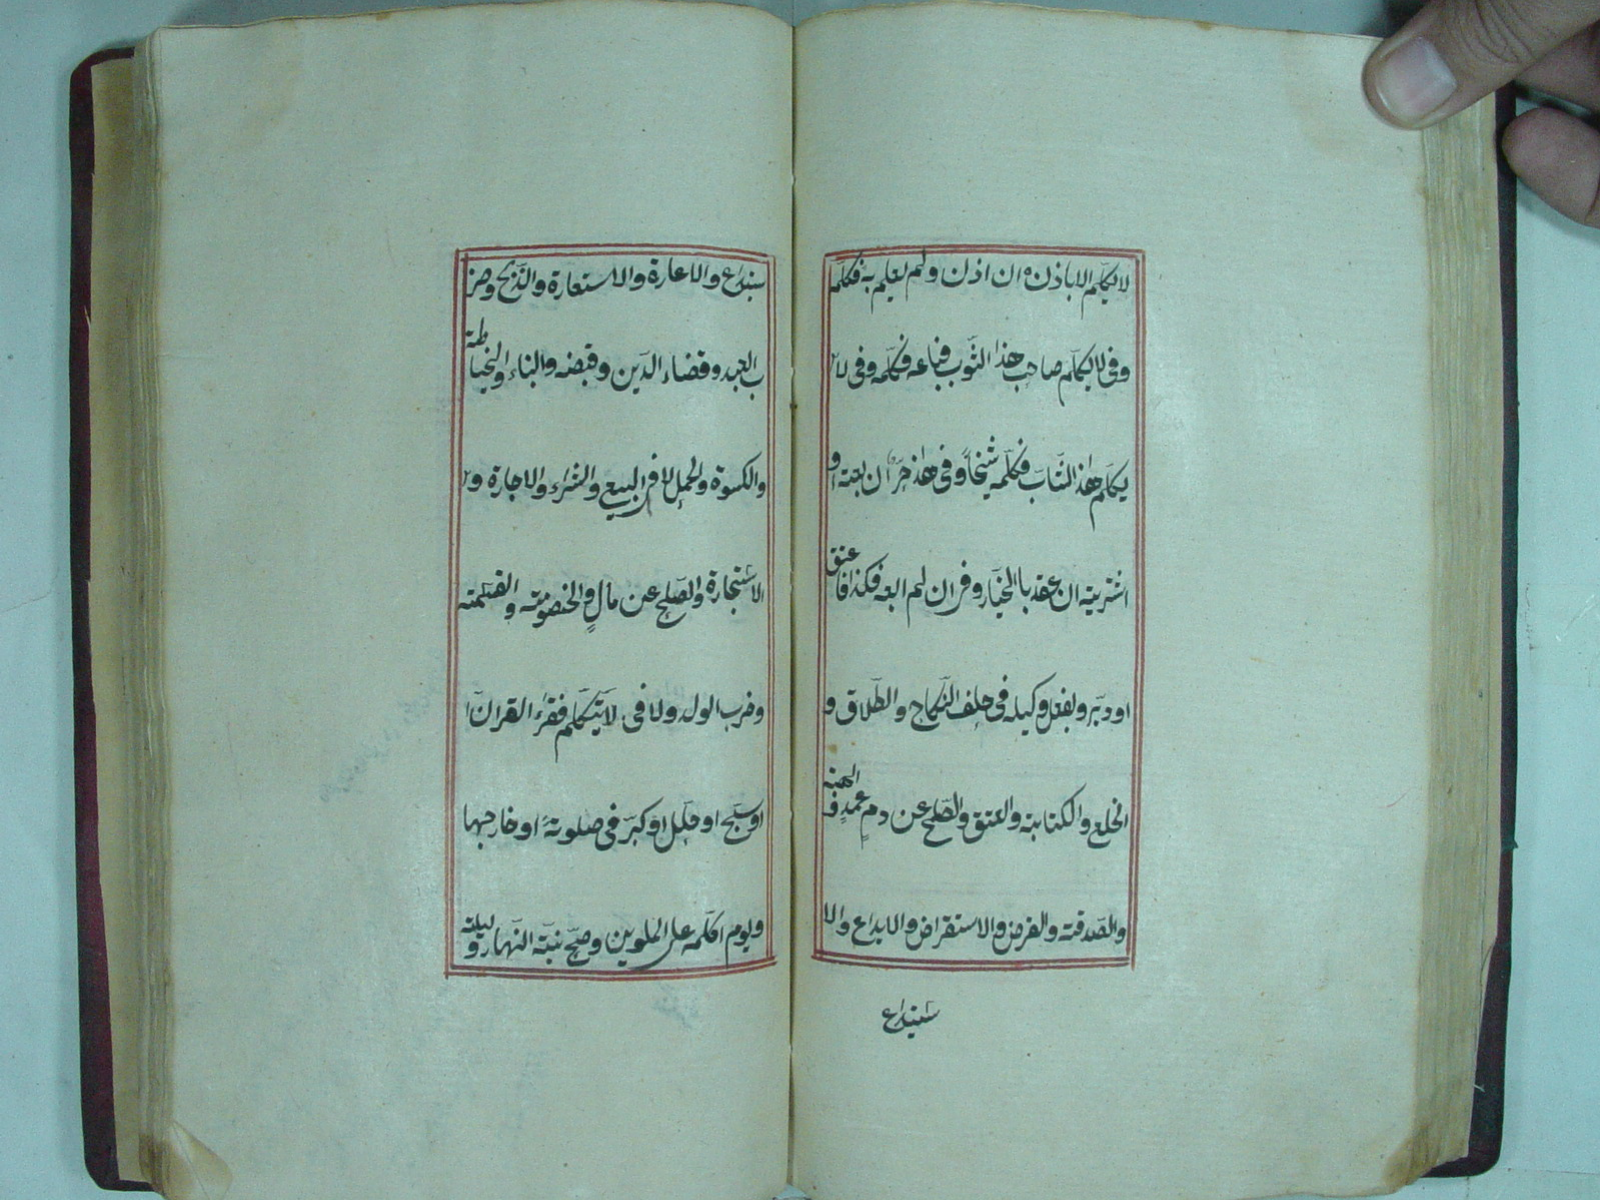 لا يكلم الا باذنه ان اذن ولم يعلم به فكلمه
وفى لا يكلم صاحب هذا الثوب فباعه فكلمه وفى لا
يكلم هذا الشاب فكلمه شيخا وفى هذا حر ان بعته او
اشتريته ان عقد بالخيار وفى ان لم ابعه فكذا فاعتق
او دبر وبفعل وكيله فى حلف النكاح والطلاق و
الخلع والكتابة والعتق والصلح عن دم عمد والهبة
والصدقة والقرض والاستقراض والايداع والا
ستيداع
ستيداع والاعارة والاستعارة والذبح وضر
ب العبد وقضاء الدين وقبضه والبناء والخياطة
والكسوة والحمل لا فى البيع والشراء والاجارة و
الاستجارة والصلح عن مال والخصومة والقسمة
وضرب الولد ولا فى لا يتكلم فقراء القران
او سبح او هلل او كبر فى صلوته او خارجها
ويوم اكلمه على الملوين وصح نية النهار وليلة